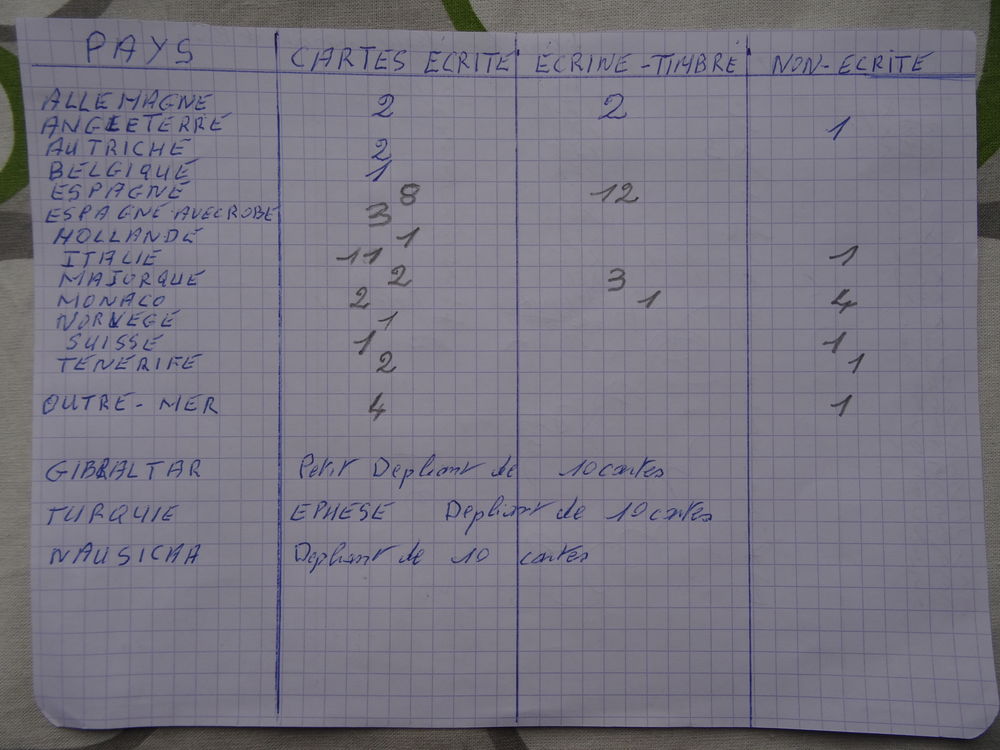 PAYS CARTES ÉCRITE ÉCRINE-TIMBRÉ NON-ECRITE
ALLEMAGNE 2 2
ANGLETERRE 1
AUTRICHE 2
BELGIQUE 1
ESPAGNE 8 12
ESPAGNE AVEC ROBE 3
HOLLANDE 1
ITALIE 11 1
MAJORQUE 2 3
MONACO 2 1 4
NORVEGE 1
SUISSE 1 1
TENERIFE 2 1
OUTRE-MER 4 1
GIBRALTAR Petit Depliant de 10 cartes
TURQUIE EPHESE Depliant de 10 cartes
NAUSICAA Depliant de 10 cartes